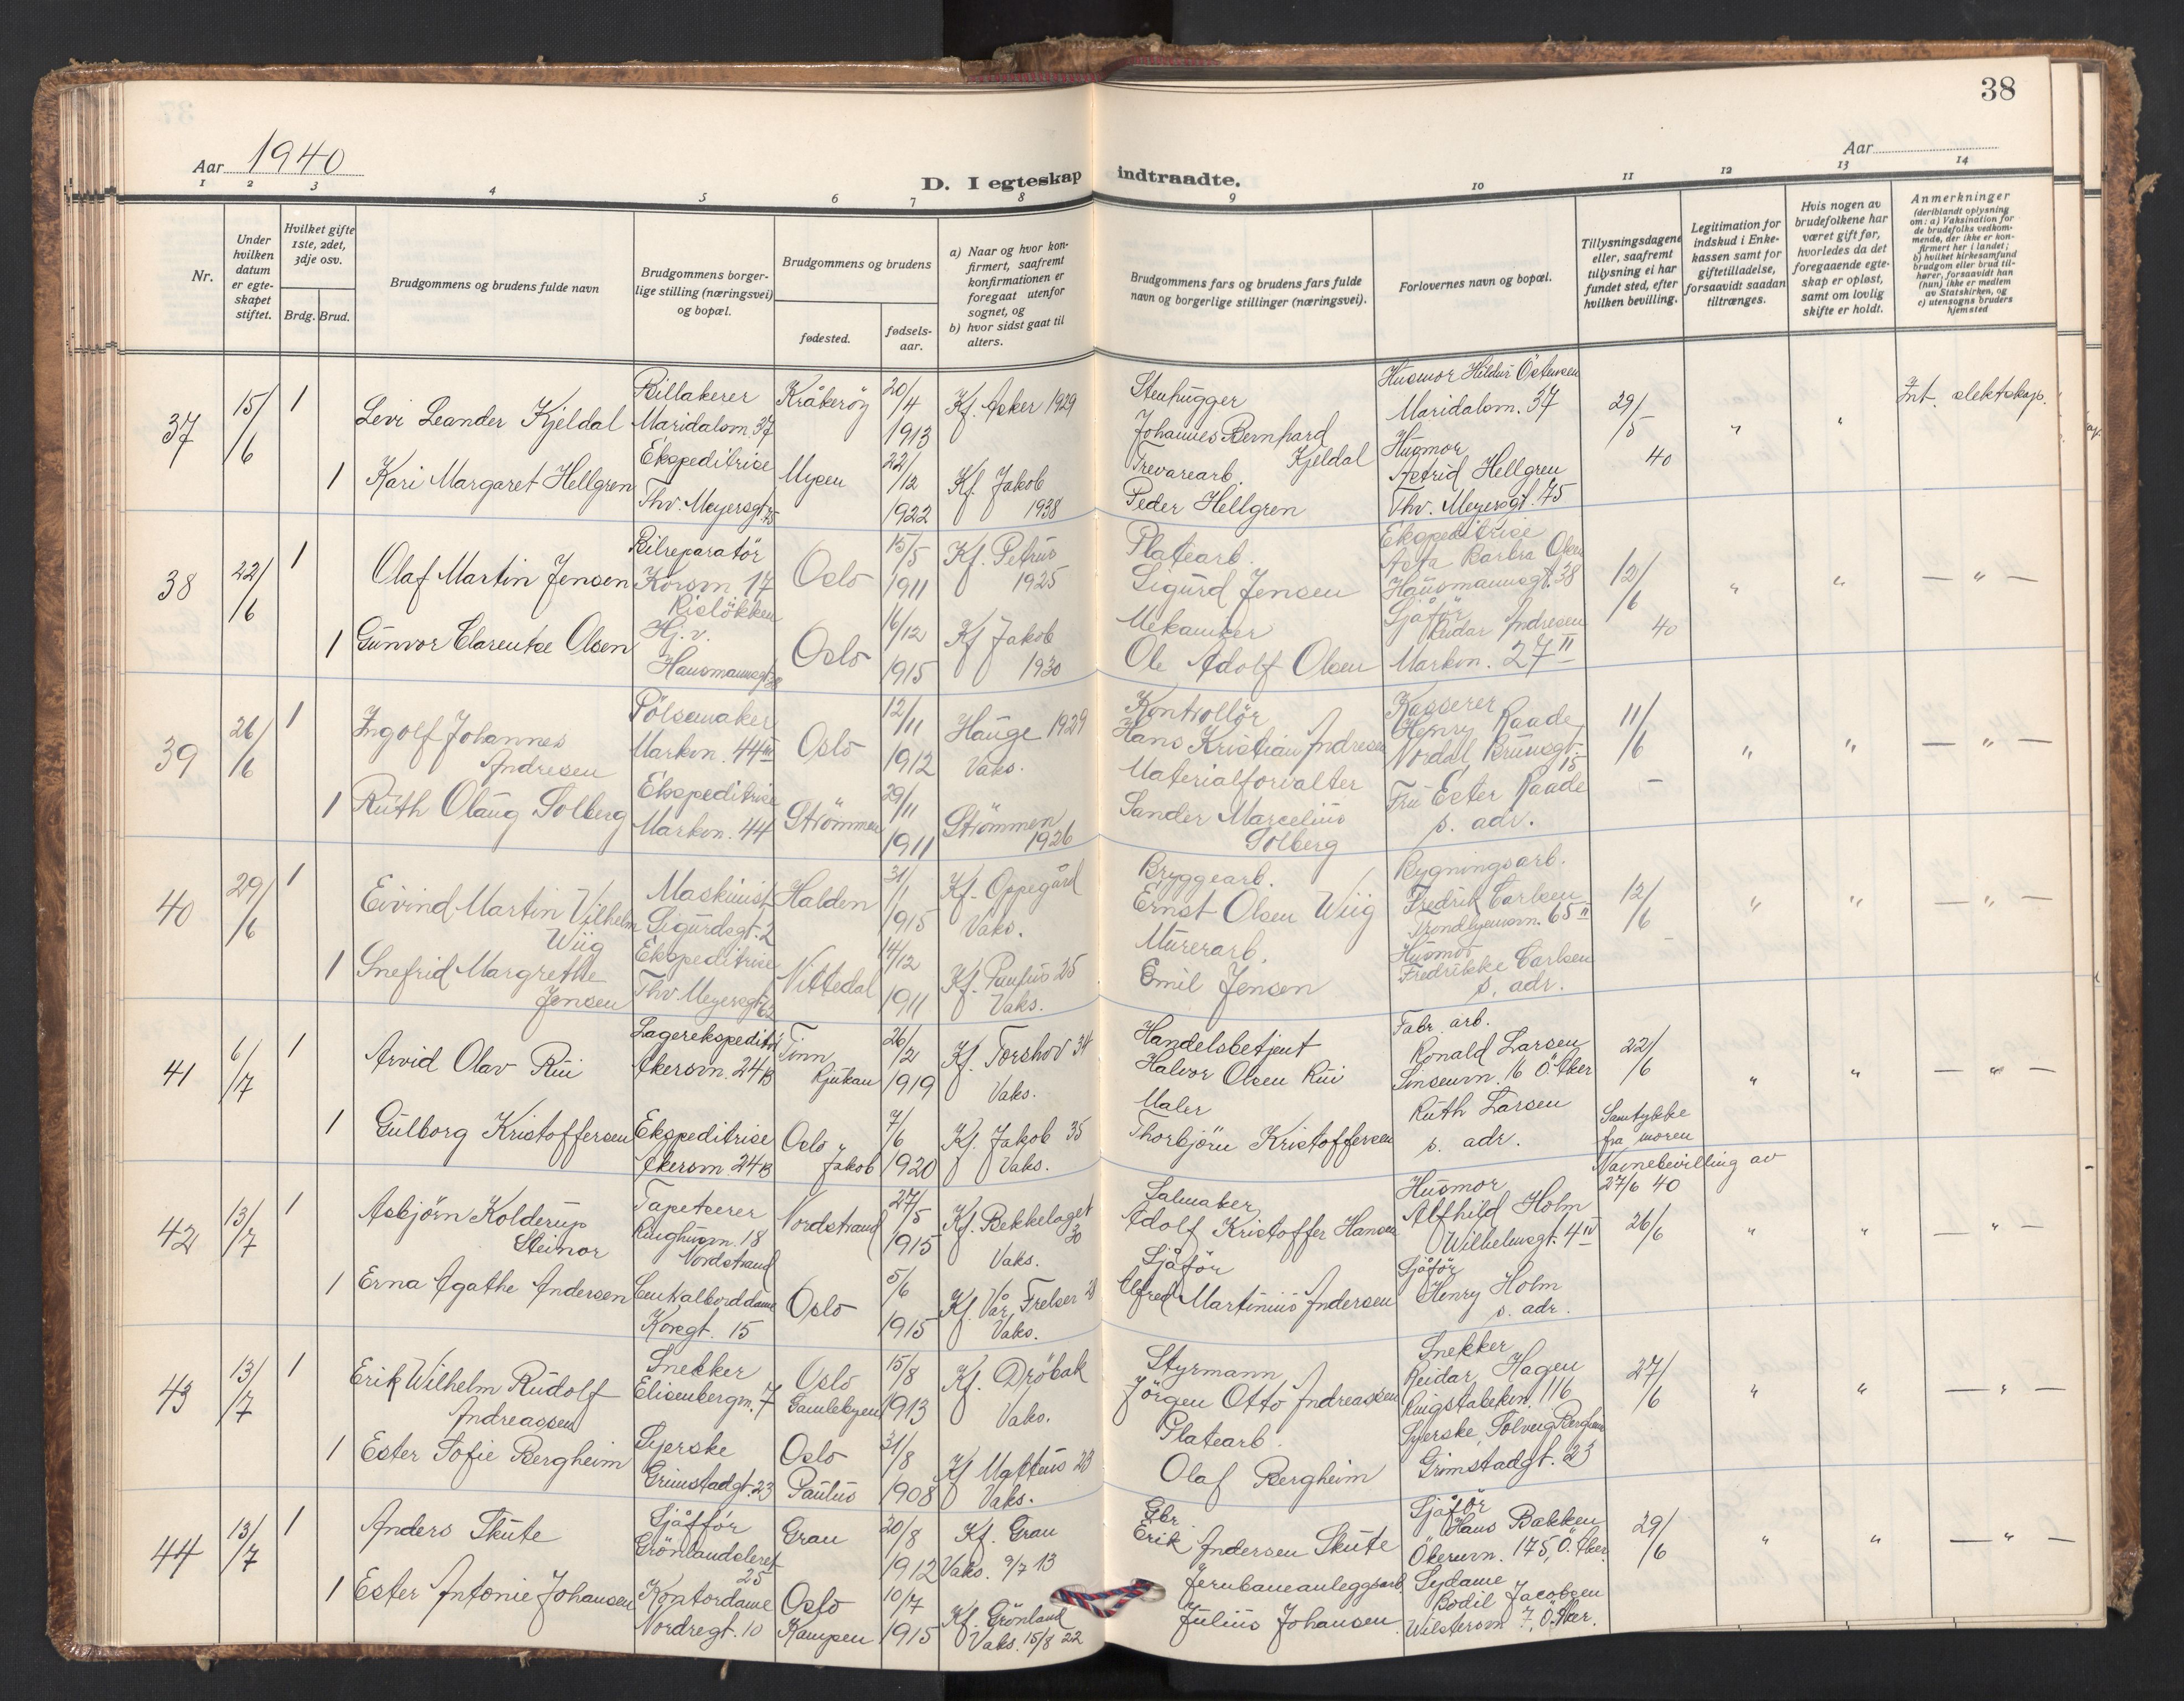 38
Aar 1940
Aar
D. I egteskap indtraadte.
1 2 3 4 5 6 7 8 9 10 11 12 13 14
Nr.
Under hvilken datum er egteskapet stiftet.
Hvilket gifte 1ste, 2det, 3dje osv.
Brdg. Brud.
Brudgommens og brudens fulde navn
Brudgommens borgerlige stilling (næringsvei) og bopæl.
Brudgommens og brudens
fødested.
fødselsaar.
a) Naar og hvor konfirmert, saafremt konfirmationen er foregaat utenfor sognet, og
b) hvor sidst gaat til alters.
Brudgommens fars og brudens fars fulde navn og borgerlige stillinger (næringsvei).
Forlovernes navn og bopæl.
Tillysningsdagene eller, saafremt tillysning ei har fundet sted, efter hvilken bevilling.
Legitimation for indskud i Enkekassen samt for giftetilladelse, forsaavidt saadan tiltrænges.
Hvis nogen av brudefolkene har været gift før, hvorledes da det foregaaende egteskap er opløst, samt om lovlig skifte er holdt.
Anmerkninger
(deriblandt oplysning om: a) Vaksination for de brudefolks vedkommende, der ikke er konfirmert her i landet; b) hvilket kirkesamfund brudgom eller brud tilhører, forsaavidt han (hun) ikke er medlem av Statskirken, og c) utensogns bruders hjemsted
37 15/6 1 Levi Leander Kjeldal Billakerer Maridalsvn. 37 Kråkeröy 20/4 1913 Kf. Asker 1929 Stenhugger Johannes Bernhard Kjeldal Husmor Hildur Östensen Maridalsvn. 37 29/5 40 " " Int. slektskap.
1 Kari Margaret Hellgren Ekspeditrise Thv. Meyersgt. 75 Mysen 22/12 1922 Kf. Jakob 1938 Trevarearb. Peder Hellgren Husmor Astrid Hellgren Thv. Meyersgt. 75
38 22/6 1 Olaf Martin Jensen Bilreparatör Korsvn. 17 Risløkken Oslo 15/5 1911 Kf. Petrus 1925 Platearb. Sigurd Jensen Ekspeditrise Asta Barbra Olsen Hausmannsgt. 38 12/6 40 " " — " —
1 Gunvor Clarentse Olsen Hj. v. Hausmannsgt. 38 Oslo 16/12 1915 Kf. Jakob 1930 Mekaniker Ole Adolf Olsen Sjåför Reidar Andresen Markvn. 27 II
39 26/6 1 Ingolf Johannes Andresen Pölsemaker Markvn. 44 III Oslo 12/11 1912 Hauge 1929 Vaks. Kontrollör Hans Kristian Andresen Kasserer Henry Raade Nordal Brunsgt. 15 11/6 — " " — " —
1 Ruth Olaug Solberg Ekspeditrise Markvn. 44 Strömmen 29/11 1911 Strömmen 1926 Materialforvalter Sander Marcelius Solberg Fru Ester Raade s. adr.
40 29/6 1 Eivind Martin Vilhelm Wiig Maskinist Sigurdsgt. 2 Halden 31/1 1915 Kf. Oppegård Vaks. Bryggearb. Ernst Olsen Wiig Bygningsarb. Fredrik Carlsen Trondhjemsvn. 65 II 12/6 — " " — " —
1 Snefrid Margrethe Jensen Ekspeditrise Thv. Meyersgt. 62 Nittedal 14/12 1911 Kf. Paulus 25 Vaks. Murerarb. Emil Jensen Husmor Fredrikke Carlsen s. adr.
41 6/7 1 Arvid Olav Rui Lagerekspeditör Akersvn. 24 B Tinn Rjukan 26/2 1919 Kf. Torshov 34 Vaks. Handelsbetjent Halvor Olsen Rui Fabr. arb. Ronald Larsen Sinsenvn. 16 Ö. Aker 22/6 " " — " —
1 Gulborg Kristoffersen Ekspeditrise Akersvn 24 B Oslo Jakob 7/6 1920 Kf. Jakob 35 Vaks. Maler Thorbjörn Kristoffersen Ruth Larsen s. adr. Samtykke fra moren
42 13/7 1 Asbjörn Kolderup Steinor Tapetserer Ringhusvn. 18 Nordstrand Nordstrand 27/5 1915 Kf. Bekkelaget 30 Vaks. Salmaker Adolf Kristoffer Hansen Husmor Alfhild Holm Wilhelmsgt. 4 IV Navnebevilling av 27/6 40 26/6 " " — " —
1 Erna Agathe Andersen Centralborddame Korsgt. 15 Oslo 5/6 1915 Kf. Vår Frelser Vaks. Sjåför Alfred Martinius Andersen Sjåför Henry Holm s. adr.
43 13/7 1 Erik Wilhelm Rudolf Andreassen Snekker Elisenbergvn. 7 Oslo Gamlebyen 15/8 1913 Kf. Dröbak Vaks. Styrmann Jörgen Otto Andreassen Snekker Reidar Hagen Ringstabekvn. 116 27/6 " " — " —
1 Ester Sofie Bergheim Syerske Grimstadgt. 23 Oslo Paulus 31/8 1908 Kf. Matteus 23 Vaks. Platearb. Olaf Bergheim Syerske Solveig Bergheim Grimstadgt. 23
44 13/7 1 Anders Skute Sjåffór Grönlandsleret 25 Gran 20/8 1912 Kf. Gran Vaks. 9/7 13 Gbr. Erik Andersen Skute Sjåför Hans Bakken Ökernvn. 175, Ö. Aker 29/6 " " — " —
1 Ester Antonie Johansen Kontordame Nordregt. 10 Oslo Kampen 10/7 1915 Kf. Grönland Vaks. 15/8 22 Jernbaneanleggsarb. Julius Johansen Sydame Bodil Jacobsen 7, Ö. Aker.